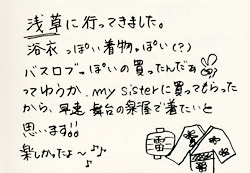 浅草に行ってきました。
浴衣っぽい着物っぽい(?)
バスロブっぽいの買ったんだぁ
ってゆうか、my sisterに買ってもらった
から、早速舞台の楽屋で着たいと
思います!!
楽しかったよ〜♪♪
雷